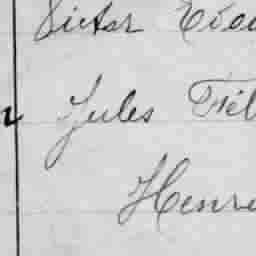 Victor
Jules Fél
Henri